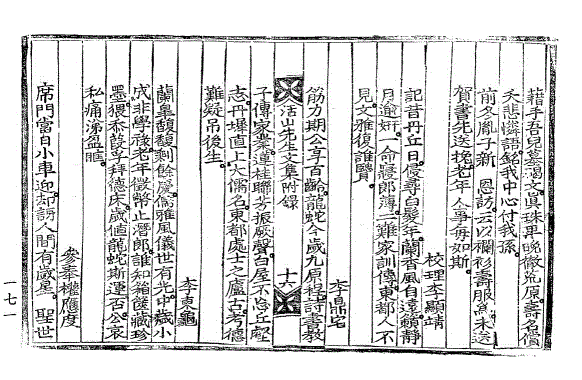 藉手吾兒墓碣文眞珠再晩徹荒原壽名償
夭悲憐語銘我中心付我孫
前冬胤子新恩訪云以襴衫壽服爲未送
賀書先送挽老年人事每如斯
校理李顯靖
記昔丹丘日侵尋白髮年蘭香風自遠鶴靜
月逾妍一命寢郎薄二難家訓傳東都人不
見文雅復誰賢
李鼎宅
筋力期公享百齡龍蛇今歲九原扃詩書敎
活山先生文集附錄
十六
子傳家業蓮桂聯芳振厥聲白屋不忘丘壑
志丹墀直上大儒名東都處士之廬古考德
難疑吊後生
李東龜
蘭阜馥馥剩餘慶儒雅風儀世有光中歲小
成非學祿老年徵幣止潛郎誰知箱篋藏珍
墨猥忝葭莩拜德床歲値龍蛇斯運否公哀
私痛涕盈眶
參奉權應度
席門當日小車迎却訝人間有歲星聖世
一七一